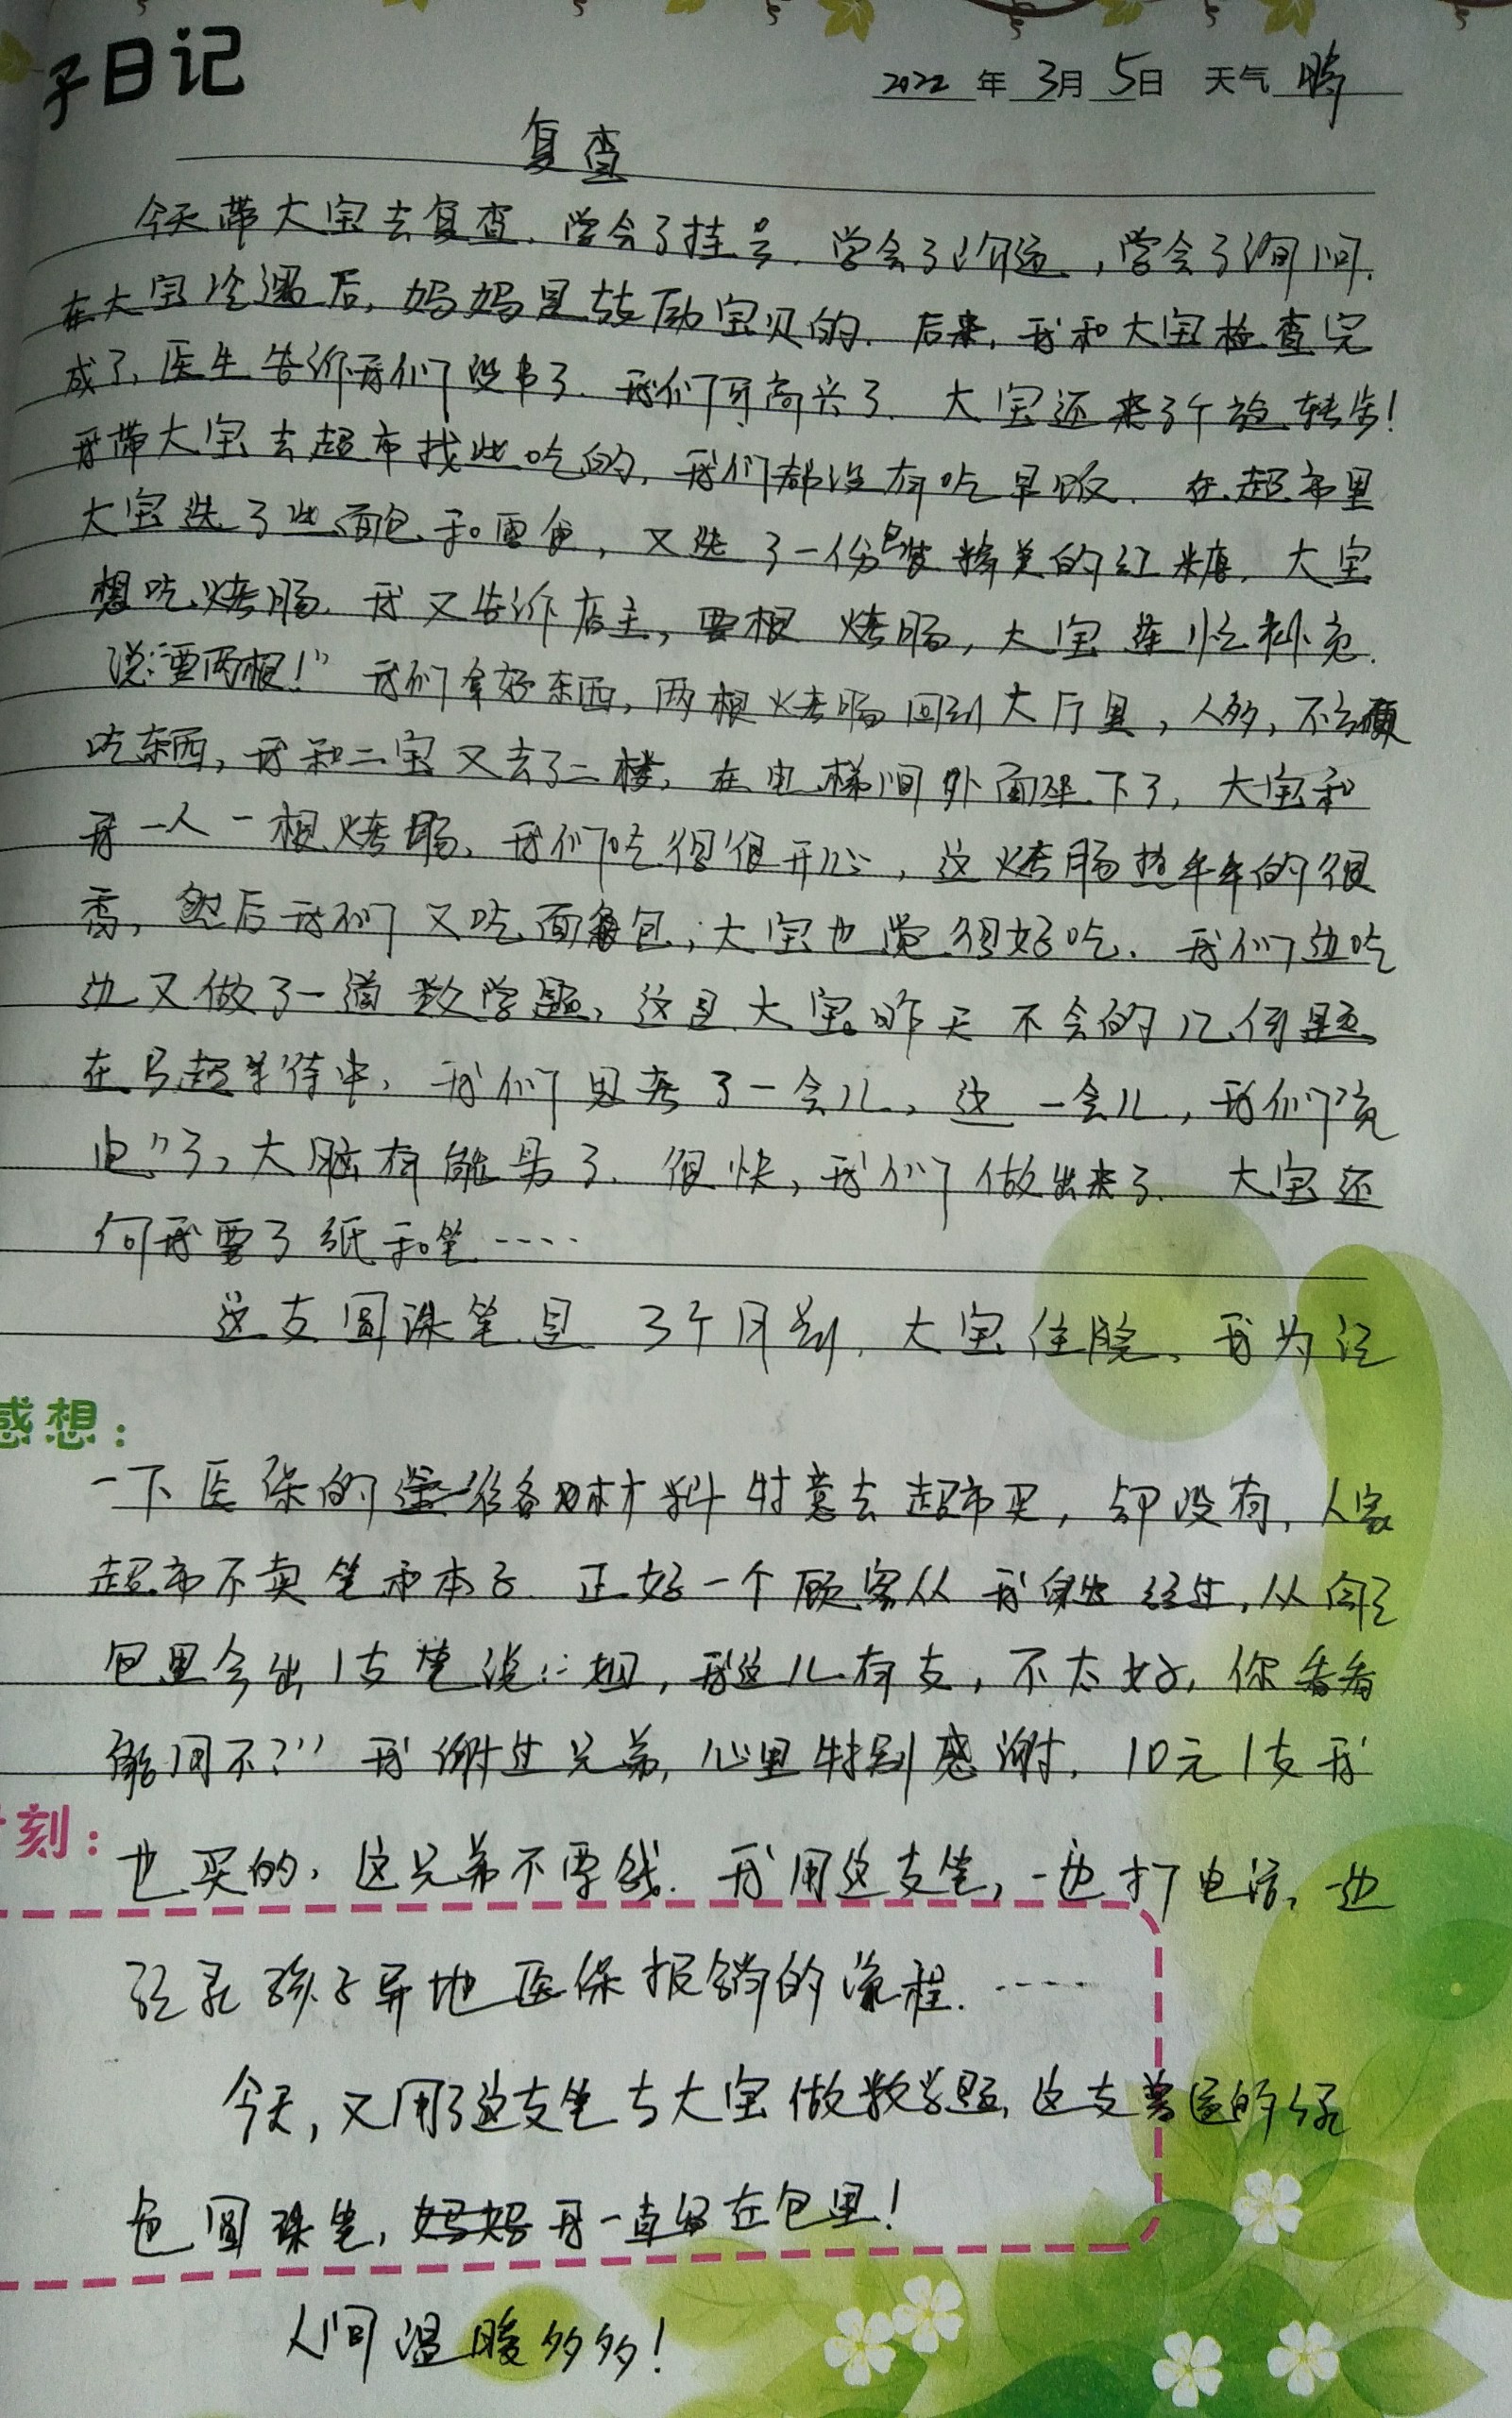 子日记
2022 年 3月 5日 天气 晴
复查
今天带大宝去复查.学会了挂号.学会了,学会了询问.
在大宝后,妈妈是鼓励宝贝的.后来,我和大宝检查完
成了,医生告诉我们没事了.我们可高兴了.大宝还来了个旋转步!
我带大宝去超市找些吃的,我们都没有吃早饭.在超市里
大宝选了些面包和面食,又选了一份包装精美的红糖.大宝
想吃烤肠.我又告诉店主,要根烤肠,大宝连忙补充
说:"要两根!"我们拿好东西,两根烤肠回到大厅里,人多,不方便
吃东西,我和二宝又去了二楼,在电梯间外面坐下了,大宝和
我一人一根烤肠,我们吃得很开心,这烤肠热乎乎的很
香,然后我们又吃面包,大宝也觉得好吃.我们边吃
边又做了一道数学题,这是大宝昨天不会的几何题
在B超等待中,我们思考了一会儿,这一会儿,我们"充
电"了,大脑有能量了.很快,我们做出来了.大宝还
向我要了纸和笔……
这支圆珠笔是3个月前,大宝住院,我为记
感想:
一下医保的准备材料特意去超市买,却没有,人家
超市不卖笔和本子.正好一个顾客从我身边经过,从自己
包里拿出1支笔说:"姐,我这儿有支,不太好,你看看
能用不?"我谢过兄弟,心里特别感谢.10元1支我
刻:
也买的,这兄弟不要钱.我用这支笔,一边打电话,一边
记录孩子异地医保报销的流程.……
今天,又用了这支笔与大宝做数学题,这支普通的绿
色圆珠笔,妈妈我一直留在包里!
人间温暖多多!